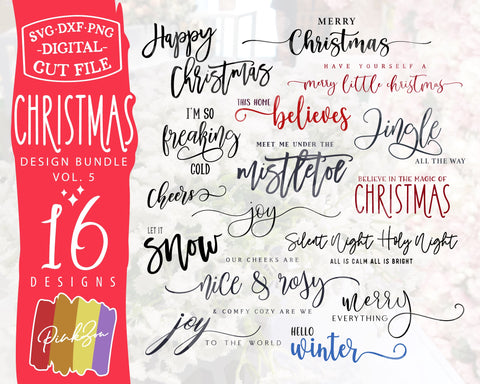 SVG·DXF·PNG
-DIGITAL-
CUT FILE
CHRISTMAS
DESIGN BUNDLE
VOL. 5
16
DESIGNS
PinkZou
Happy
Christmas
MERRY
Christmas
HAVE YOURSELF A
merry little christmas
THIS HOME
believes
I'M SO
freaking
COLD
Jingle
ALL THE WAY
MEET ME UNDER THE
mistletoe
Cheers
BELIEVE IN THE MAGIC OF
CHRISTMAS
joy
LET IT
snow
Silent Night Holy Night
ALL IS CALM ALL IS BRIGHT
OUR CHEEKS ARE
nice & rosy
& COMFY COZY ARE WE
merry
EVERYTHING
joy
TO THE WORLD
HELLO
winter